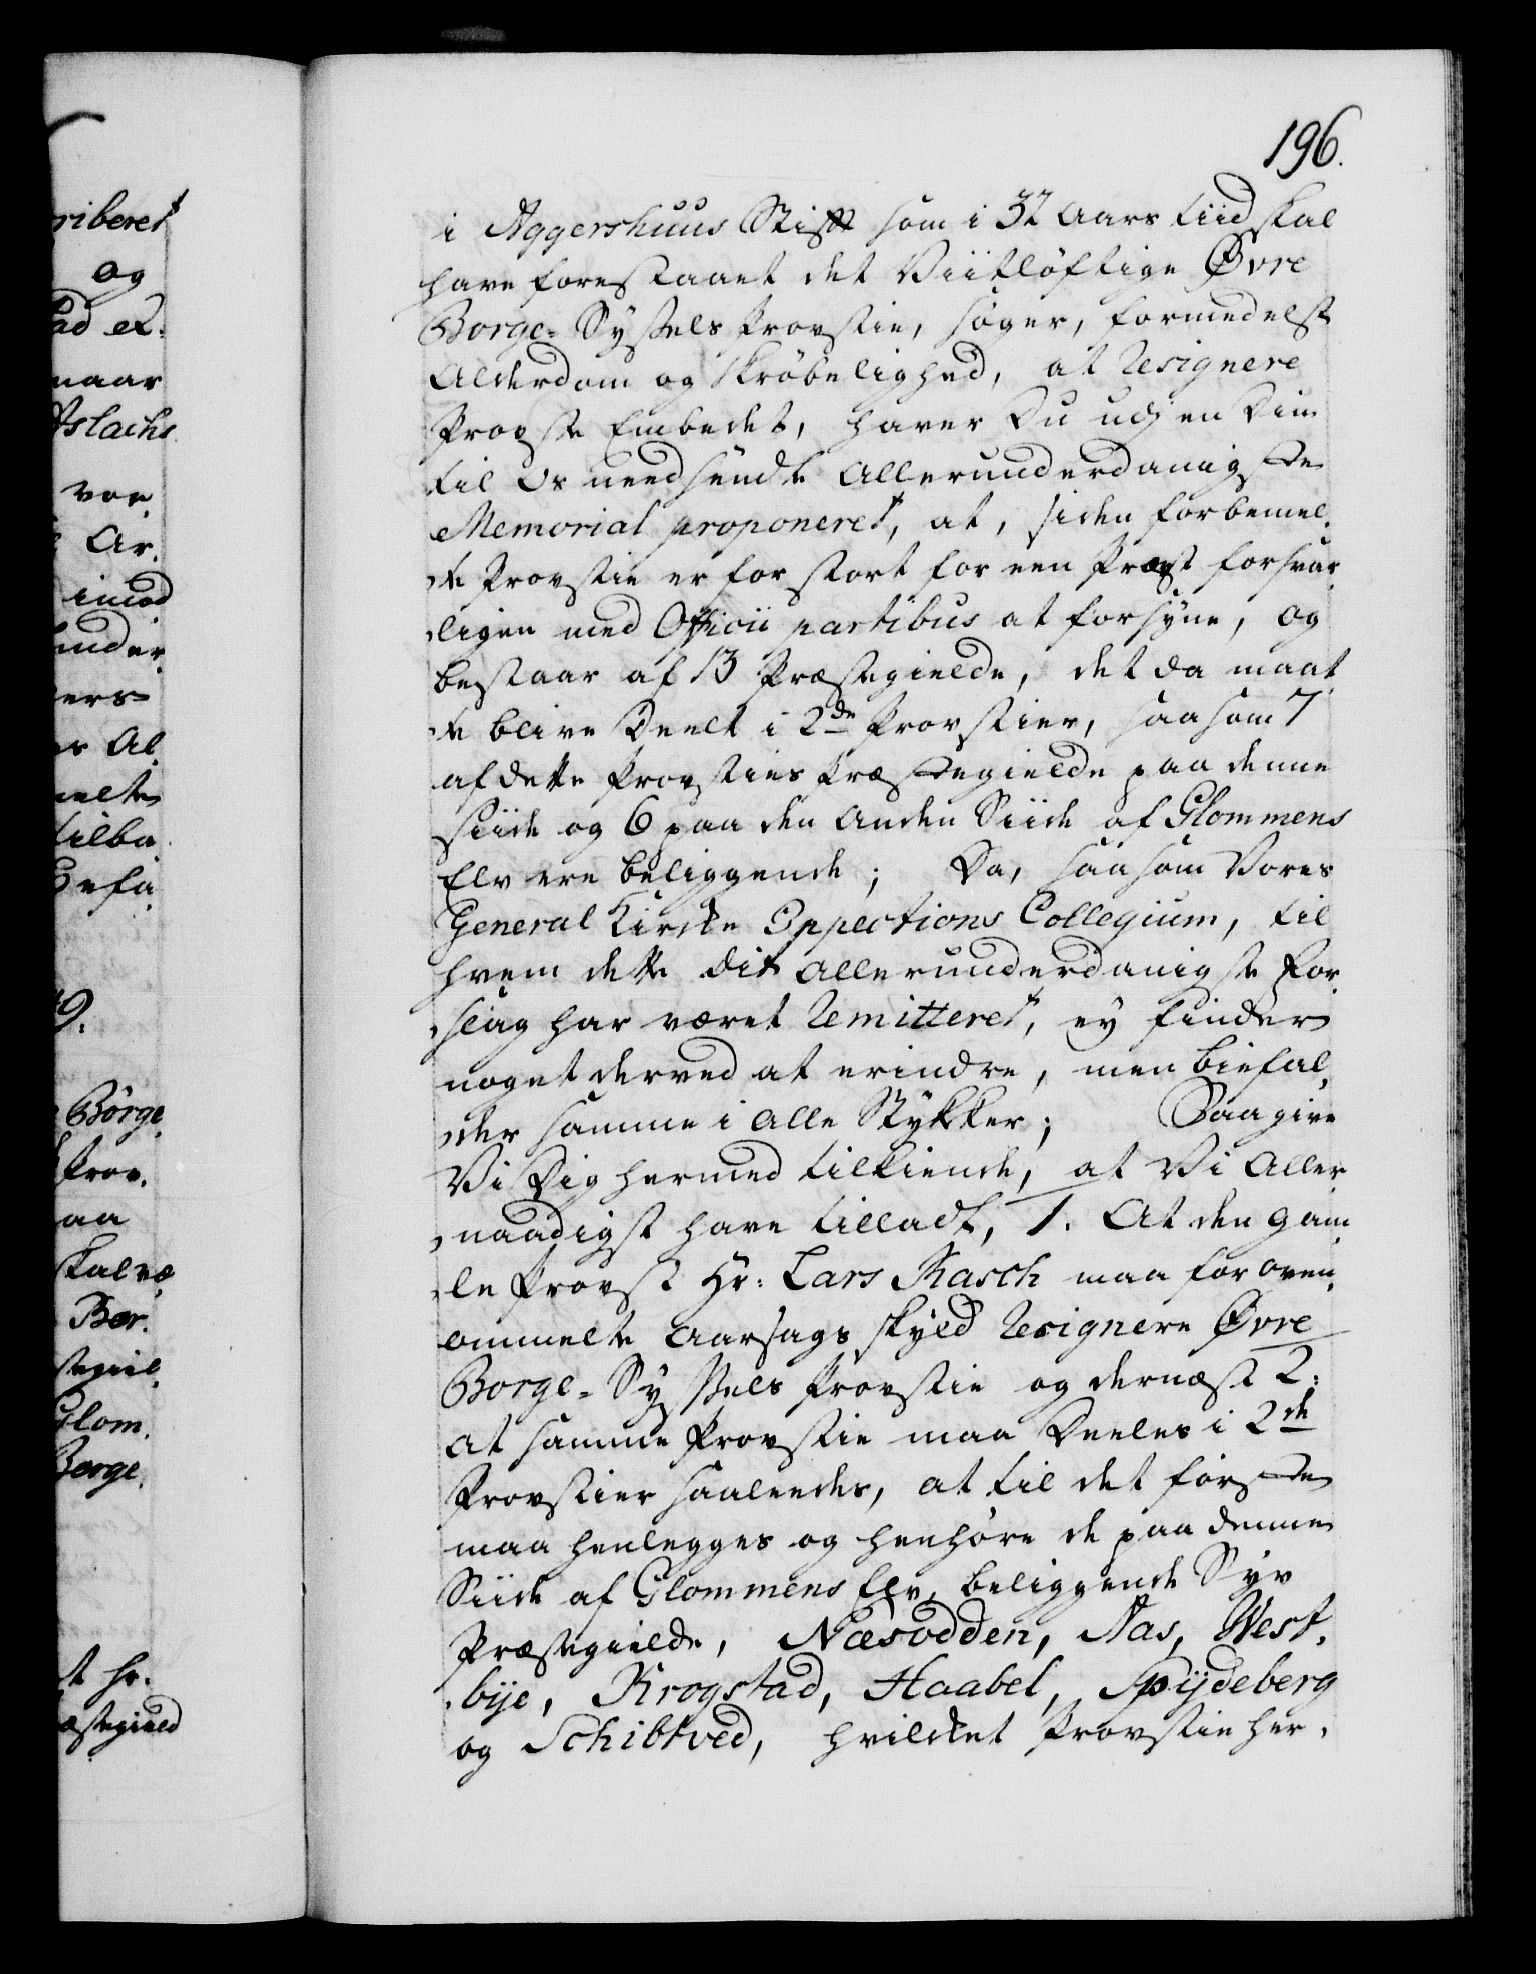 196.
i Aggershuus Stift som i 32 Aars tiid skal
have forestaaet det Viitløftige Øvre
Borge-Syssels Provstie, søger, formedelst
Alderdom og Skrøbelighed, at Resignere
Provste Embedet, haver Du udj en Din
til Os needsendte allerunderdanigste
Memorial proponeret, at, siden forbemel,
,te Provstie er for stort for een Provst forsvar,
,ligen med Officii partibus at forsyne, og
bestaar af 13 Præstegielde, det da maat,
,te blive Deelt i 2de Provstier, saasom 7
af dette Provsties Præstegielde paa denne
Siide og 6 paa den anden Siide af Glommens
Elv ere beliggende; Da, saasom Vores
General Kirke Inspections Collegium, til
hvem dette dit allerunderdanigste For,
,slag har været Remitteret, ey finder
noget derved at erindre, men biefal,
,der samme i alle Stykker; Saa give
Vi Dig hermed tilkiende, at Vi Aller,
,naadigst have tilladt, 1. At den gam,
,le Provst Hr: Lars Rasch maa for oven,
ommelte Aarsags skyld Resignere Øvre
Borge-Syssels Provstie og dernæst 2:
at samme Provstie maa Deeles i 2de
Provstier saaledes, at til det første
maa henlegges og henhøre de paa denne
Siide af Glommens Elv, beliggende Syv
Præstegielde, Næsodden, Aas, West,
,bye, Krogstad, Haabel, Spydeberg
og Schibtved, hvilcket Provstie her,
riberet
og
naar
Aslachs
Ar.
imod
under,
ers
Al,
tilba,
9.
Børge,
Prov,
aa
skal væ,
Bor,
Glom,
Borge,
t Hr.
æstegield